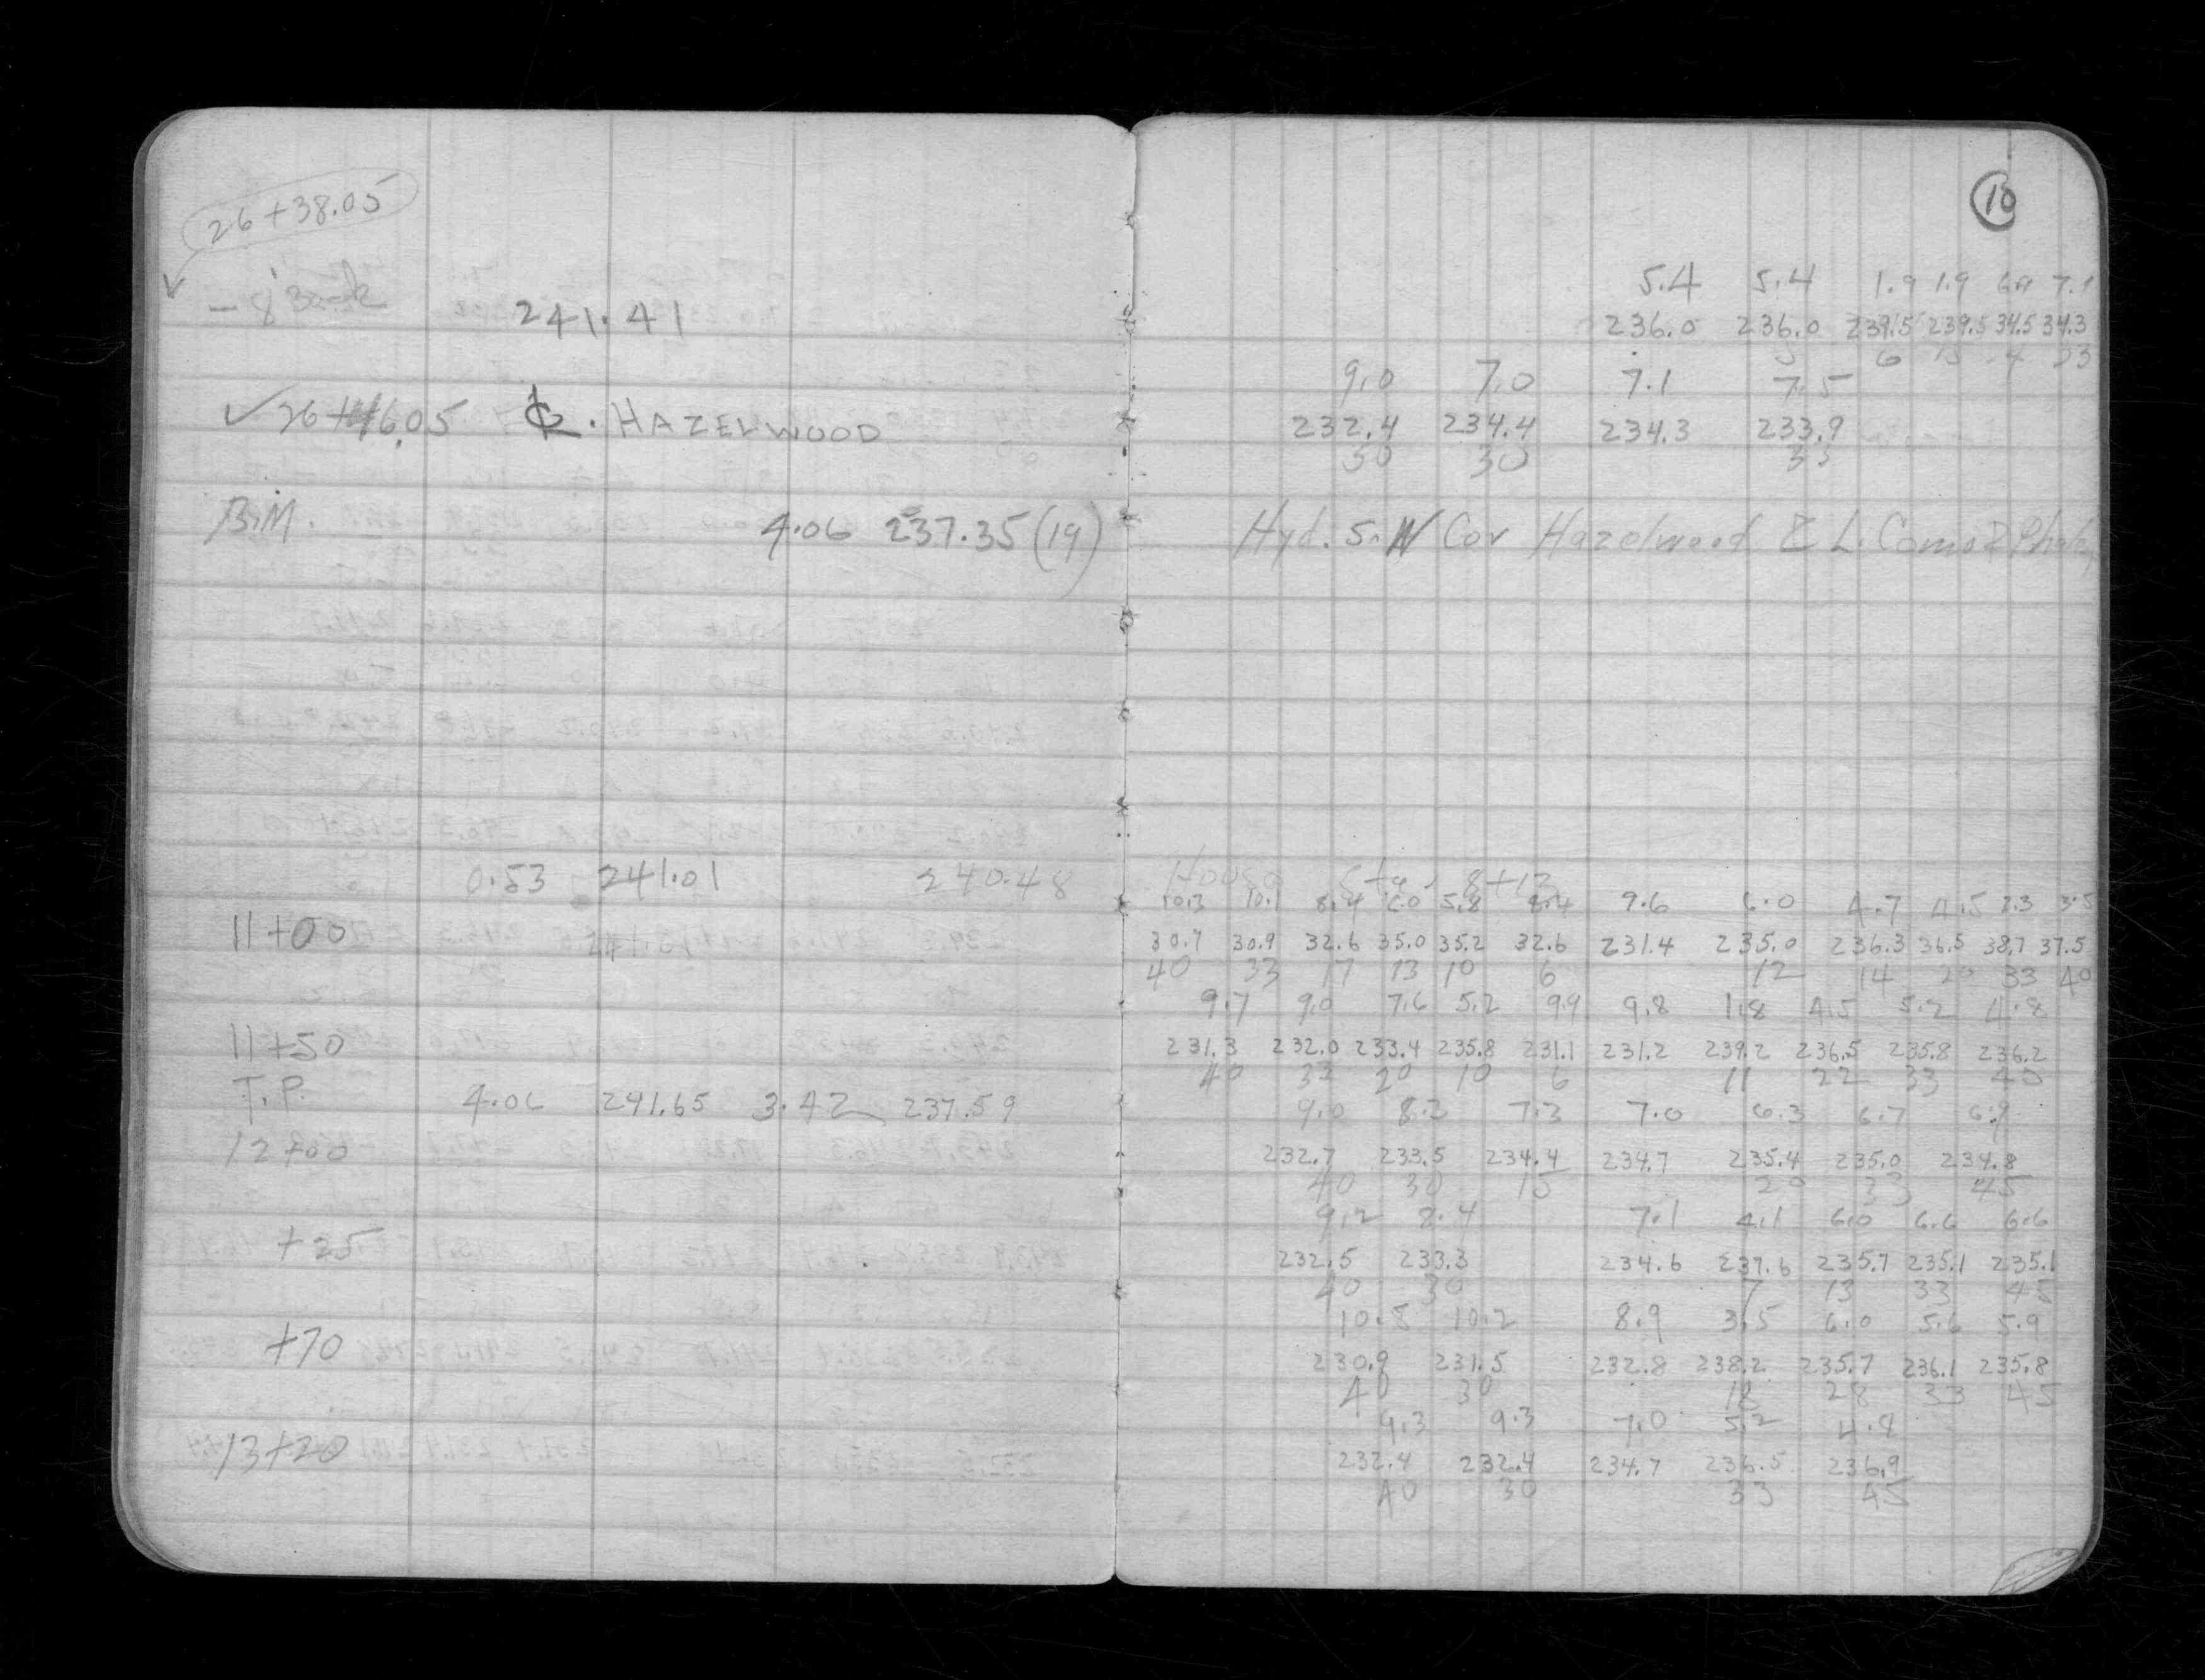 26+38.05
10
-8' Back
241.41
5.4 5.4 1.9 1.9 6.9 7.1
236.0 236.0 239.5 239.5 34.5 34.3
9.0 7.0 7.1 7.5
26+46.05 ℄. HAZELWOOD
232.4 234.4 234.3 233.9
30 30 33
B.M. 4.06 237.35 (19)
Hyd. S.W Cor Hazelwood & L. Como
0.53 241.01 240.48
House Sta. 8+13
10.3 10.1 8.4 6.0 5.8 8.4 9.6 6.0 4.7 4.5 2.3 3.5
11+00
30.7 30.9 32.6 35.0 35.2 32.6 231.4 235.0 236.3 36.5 38.7 37.5
40 33 17 13 10 6 12 14 20 33 40
9.7 9.0 7.6 5.2 9.9 9.8 1.8 4.5 5.2 4.8
11+50
231.3 232.0 233.4 235.8 231.1 231.2 239.2 236.5 235.8 236.2
40 33 20 10 6 11 22 33 40
T.P. 4.06 241.65 3.42 237.59
9.0 8.2 7.3 7.0 6.3 6.7 6.9
12+00
232.7 233.5 234.4 234.7 235.4 235.0 234.8
40 30 15 20 33 45
9.2 8.4 7.1 4.1 6.0 6.6 6.6
+25
232.5 233.3 234.6 237.6 235.7 235.1 235.1
40 30 7 13 33 45
10.8 10.2 8.9 3.5 6.0 5.6 5.9
+70
230.9 231.5 232.8 238.2 235.7 236.1 235.8
40 30 18 28 33 45
9.3 9.3 7.0 5.2 4.8
13+20
232.4 232.4 234.7 236.5 236.9
40 30 33 45